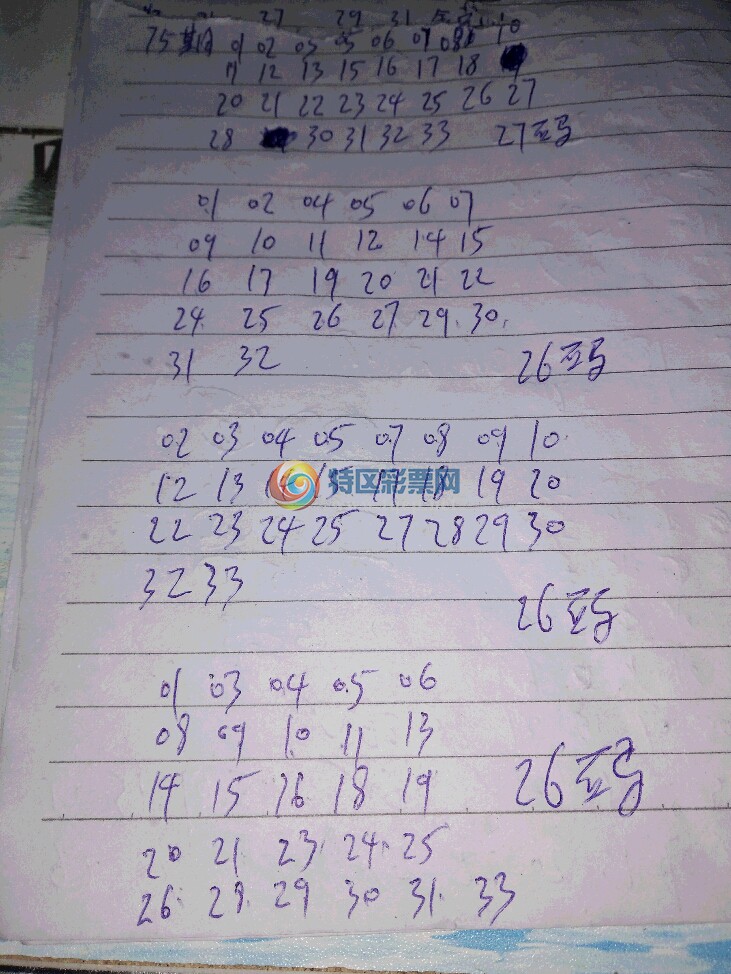 27 29 31
75期 01 02 03 05 06 07 08 10
11 12 13 15 16 17 18
20 21 22 23 24 25 26 27
28 30 31 32 33 27红号
01 02 04 05 06 07
09 10 11 12 14 15
16 17 19 20 21 22
24 25 26 27 29 30
31 32 26红号
02 03 04 05 07 08 09 10
12 13 15 17 18 19 20
特区彩票网
22 23 24 25 27 28 29 30
32 33
26红号
01 03 04 05 06
08 09 10 11 13
14 15 16 18 19 26红号
20 21 23 24 25
26 28 29 30 31 33